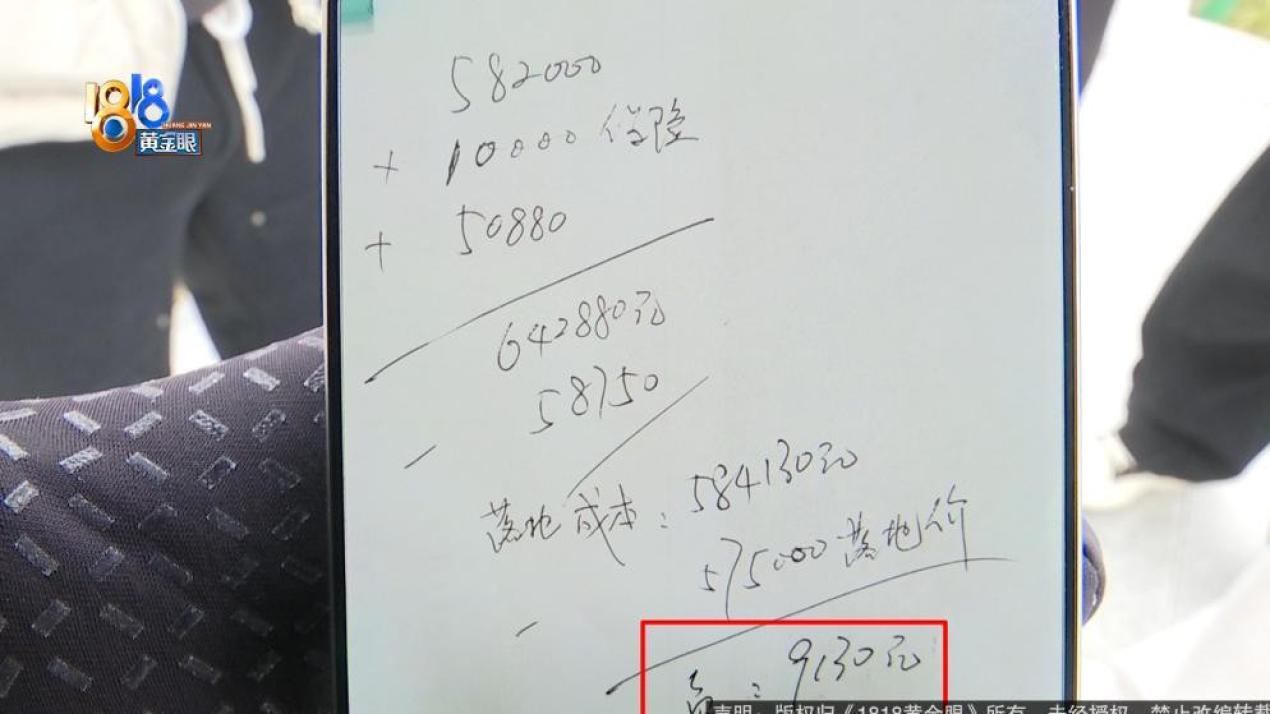 1818
HUANG JIN YAN
黄金眼
582000
+ 10000 保险
+ 50880
642880元
- 58750
落地成本：584130元
- 575000落地价
：9130元
声明：版权归《1818黄金眼》所有，未经授权，禁止改编转载